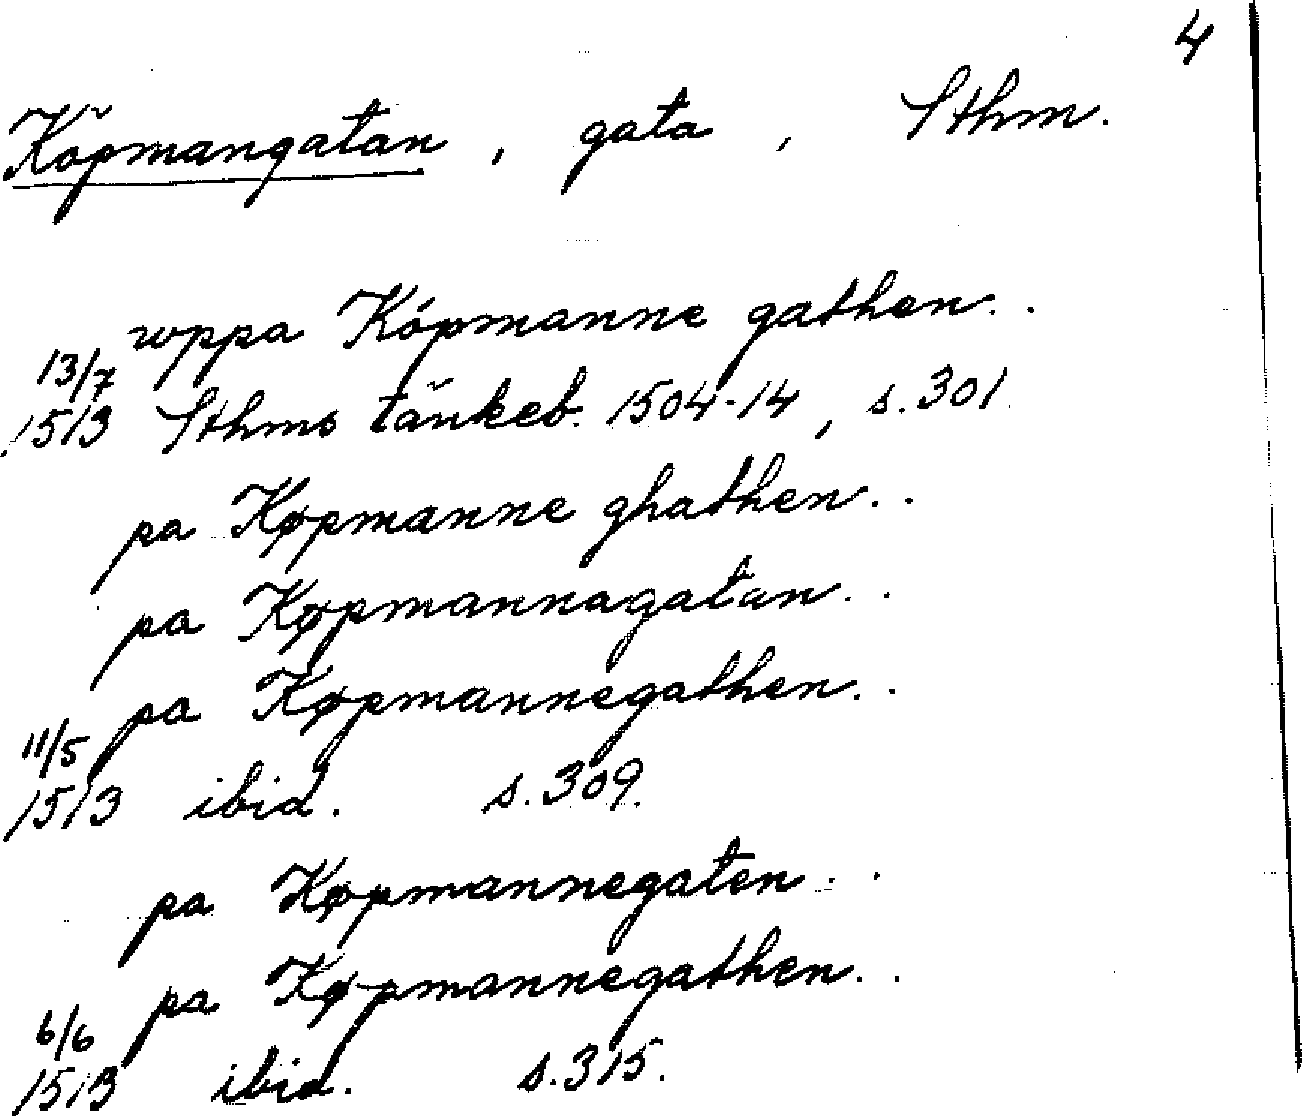 4
Köpmangatan, gata, Sthm.
wppa Kópmanne gathen..
13/7
1513 Sthms tänkeb. 1504-14, s. 301
pa Køpmanne ghathen..
pa Køpmannagatan..
pa Køpmannegathen..
11/5
1513 ibid. s. 309.
pa Køpmannegaten..
pa Køpmannegathen..
6/6
1513 ibid. s. 315.